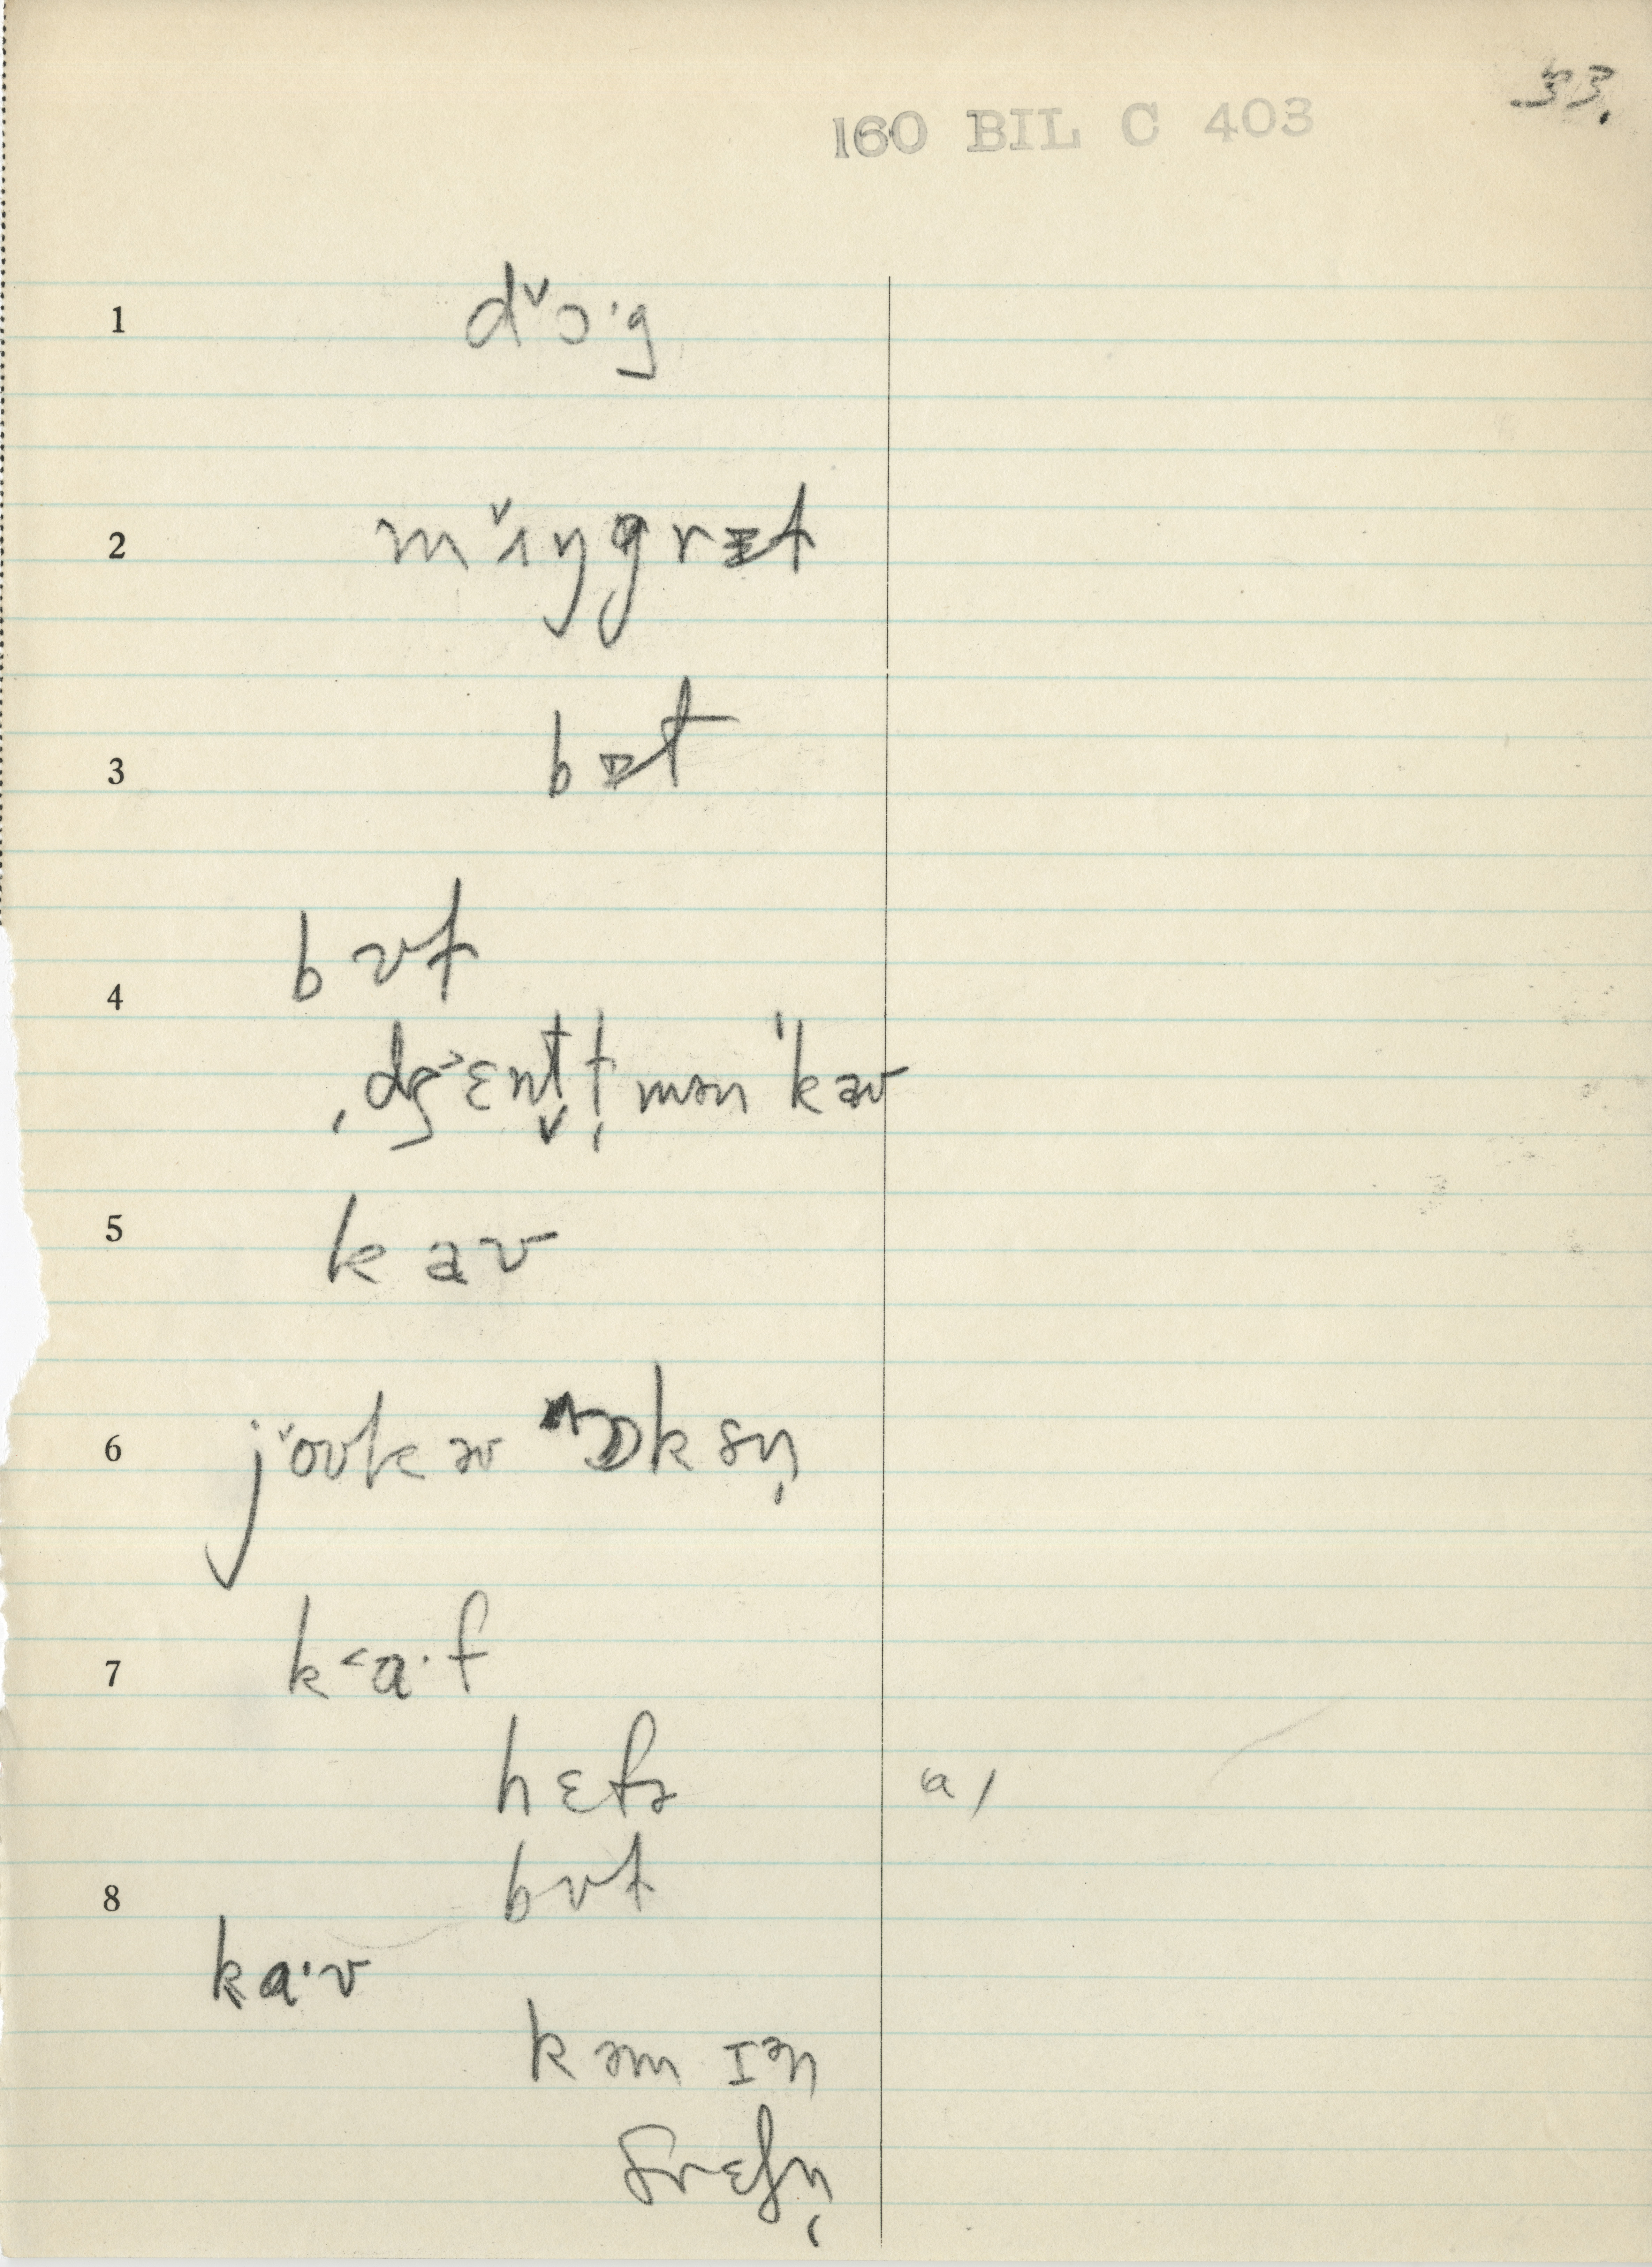 33.
160 BIL C 403
1 dˇɔ·g
2 mˇɪŋgrɪt
3 bɪt
4 bʊt
ˌdʒ˃ɛnt̬t̩mən ˈkəʊ
5 kaʊ
6 jˇoʊkəʊ ɒksn̩
7 k˂a·f
hɛfɚ a/
8 bʊt
ka·ʊ
kəm ɪən
frɛʃn̩